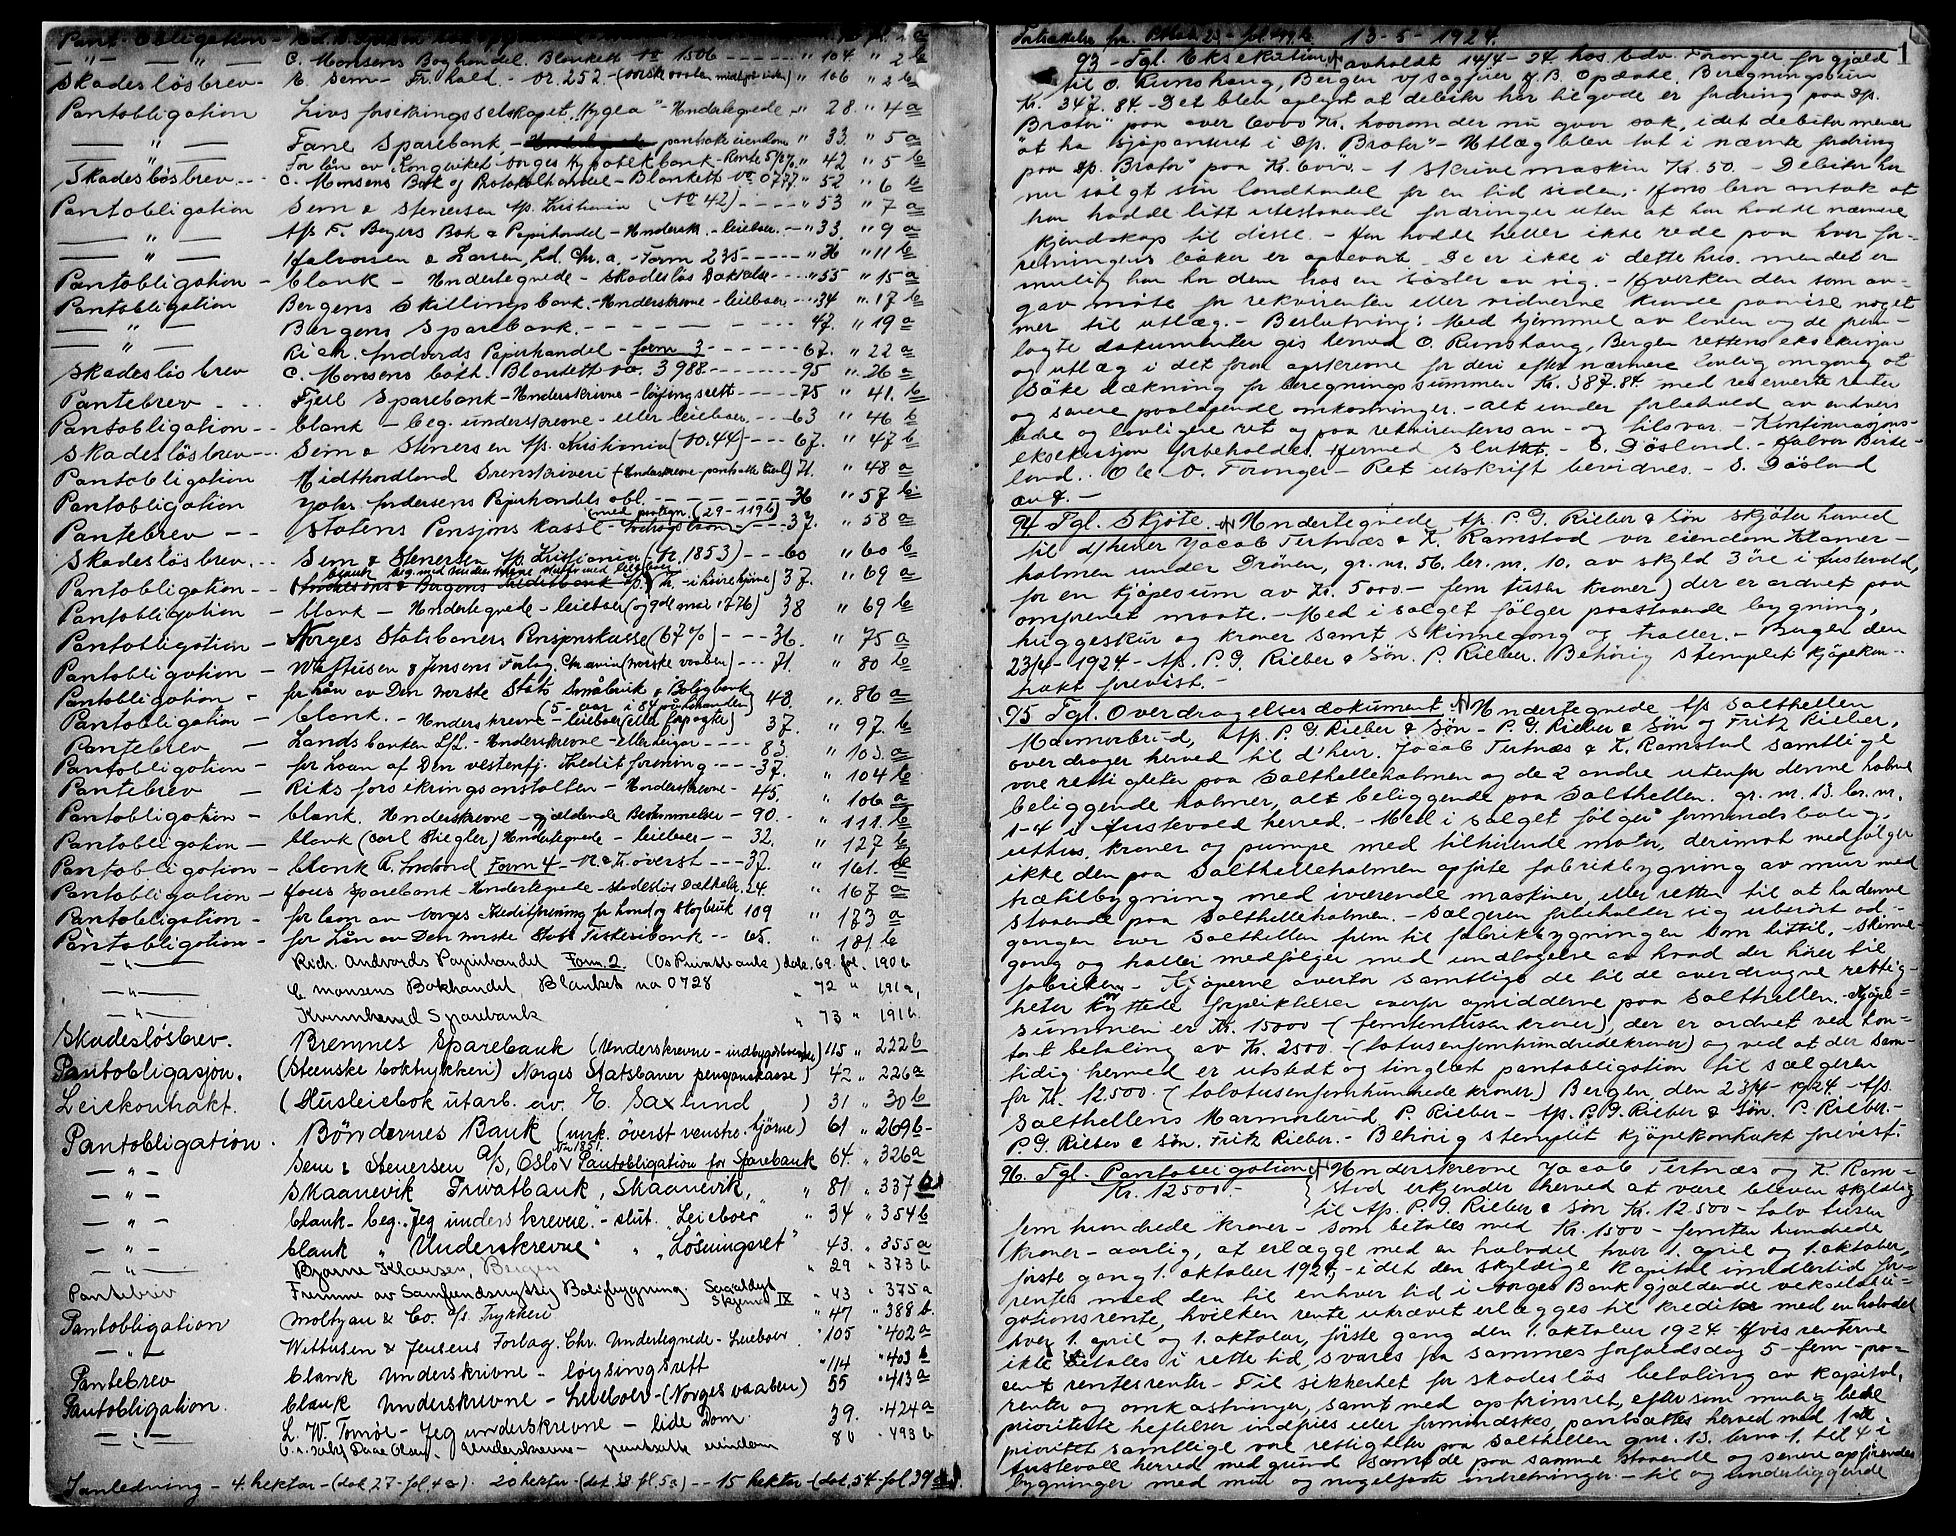 C. Monsens Boghandel. Blankett no 1506 - - - " 104 " 2 b
Skadesløsbrev - E. Sem - Fr.hald - nr. 252. - (norske vaaben midtpå siden) " 106 " 2 b
Pantobligation Livsforsikringsselskapet "Hygea" - Undertegnede - " 28. " 4 a
— " — Fane Sparebank - pantsatte eiendom " 33. " 5 a
For lån av Kongeriket Norges Hypotekbank - Rente 5½% " 42 " 5 b
Skadesløsbrev - - C. Monsens Bok og Protokolhandel - Blankett no 0777 " 52 " 6 b
Pantobligation Sem & Stenersen A/s. Kristiania (No 42) - - - - " 53 " 7 a
— " — A/s F. Beyers Bok & Papirhandel - Undersk. - leieboer. - " 33. " 9 a
— " — Halvorsen & Larsen, Ltd. Chr.a. - Form 235 - - - - " 36 " 11 b
Pantobligation - blank - Undertegnede - skadesløs Dækkelse - - " 55 " 15 a
Pantobligation Bergens Skillingsbank - Underskrevne - leieboer - - " 34 " 17 b
— " — Bergens Sparebank. - - - - - - - - 47. " 19 a
— " — Rich. Andvords Papirhandel - form 3 - - - - - - 67. " 22 a
Skadesløsbrev C. Monsens Bokh. Blankett no. 3988 - - - - - - 95 " 26 a
Pantebrev - - - Fjell Sparebank - Underskrivne - løysingsrett - - - - 75 " 41. b
Pantobligation - - blank - beg. underskrevne - eller leieboer - - - 63 " 46 b
Skadesløsbrev - - Sem & Stenersen A/s. Kristiania (No. 44) - - - - 67. " 47 b
Pantobligation Midthordland Sorenskriveri (Underskrevne - pantsatte eiend) 71. " 48 a
Pantobligation Johs. Andersens Papirhandels obl. - - - - - - - 36 " 57 b
(med paategn. (29-119b)
Pantebrev - - Statens Pensjonskasse - - 37. " 58 a
Skadesløsbrev - - Sem & Stenersen A/s. Kristiania (Nr. 1853) - - - 60 " 60 b
Pantobligation - - 37. " 69 a
Pantobligation - blank - Undertegnede - leieboer (og 9de mai 1776) 38 " 69 b
Pantobligation - Norges Statsbaners Pensjonskasse (67%) - - - 36. " 75 a
Pantobligation - Wittusen & Jensens Forlag. Chr.ania (norske vaaben) - - - 71. " 80 b
Pantobligation - for lån av Den norske Stats Småbruk & Boligbank 48. " 86 a
(5 - aar i 84 på
Pantobligation - blank. - Underskrevne - leieboer (eller forpagter) 37. " 97. b
Pantebrev - Landsbanken L/L. - Underskrevne - eller leigar - - - - 83. " 103. a
Pantobligation - for laan af Den vestenfj. Kreditforening - - - - 37. " 104 b
Pantebrev - Riksforsikringsanstalten - Underskrevne - 45. " 106 a
Pantobligation - blank. Underskrevne - gjældende Bestemmelser - 90. - " 111. b
Pantobligation - blank (Carl Ziegler) Undertegnede - leieboer - - 32. " 127 b
Pantobligation - blank R. Andvord Form 4 - N. & K. øverst - - - 37. " 161. b
Pantobligation - Hous Sparebank - Undertegnede - skadesløs Dækkelse. 24. " 167 a
Pantobligation - for laan av Norges Kreditforening for land og skogbruk 109 " 173 a
Pantobligation - for Lån av Den norske Stats Fiskeribank - - 65. " 181. b
— " — Rich. Andvords Papirhandel Form. 2. (Os Privatbank) dok. 69. fol. 190 b
— " — C. Monsens Bokhandel Blankett no 0728 " 72 " 191 a,
— " — Kvinnherad Sparebank " 73 " 191 b.
Skadesløsbrev. Bremnes Sparebank (Underskrevne - indbygdsboende) 115 " 222 b
Pantobligasjon. (Steenske boktrykkeri) Norges Statsbaner pensjonskasse) 42 " 226 a
Leiekontrakt. (Husleiebok utarb. av. E. Saxlund ) 31 " 30 b
Pantobligation. Bøndernes Bank (mrk. øverst venstre hjørne) 61 " 269 b -
— " — Sem & Stenersen A/S, Oslo Nr. 1851. Pantobligation for Sparebank 64. " 326 a
— " — Skaanevik Privatbank, Skaanevik, " 81 " 337 b
— " — blank - beg. "Jeg underskrevne" - slut. "Leieboer " 34 " 354 b
— " — blank " "Underskrevne" " "Løsningsret" 43. " 355 a
— " — Bjarne Klausen, Bergen " 29 " 373 b
Pantebrev Fremme av Samfundsnyttig Boligbygning. Skjema IX " 43 " 375 a
Pantobligation Moltzau & Co. a/s. Trykkeri " 47 " 388 b.
— " — Wittusen & Jensens Forlag. Chr. Undertegnede - Leieboer. " 105 " 402 a
Pantebrev blank Underskrivne - løysingsrett " 114 " 403 b
Pantobligation. blank Underskrevne - Leieboer - (Norges vaaben) 55 " 413 a
— " — L. W. Tomøe - Jeg underskrevne - lide Dom. 39. " 424 a
Underskrevne - pantsatte eiendom 80 " 493 b
Innledning - 4. hektar - (dok. 27 - fol. 4 a). 20 hektar - (dok. 38 fl. 5 a) - - 15 hektar - (dok. 54 - fol. 39 a).
1
Fortsættelse fra 13-5-1924.
93 - Tgl. Eksekution avholdt 14/4-24 hos Edv. Foranger for gjæld
til O. Kunshaug, Bergen v/ sagfører J. B. Opdahl, Beregningssum
Kr. 347. 84. - Det blev oplyst at debitor har tilgode er fordring paa D/s.
"Brator" paa over 6000 Kr. hvorom der nu gaar sak, idet debitor mener
at ha sjøpanteret i D/s. "Brator" - Utlæg blev tat i nævnte fordring
paa D/s. "Brator" paa Kr. 6000. - 1 skrivemaskin Kr. 50. - Debitor har
nu solgt sin landhandel for en tid siden. - Hans bror antok at
han hadde litt utestaaende fordringer uten at han hadde nærmere
kjendskap til disse. - Han hadde heller ikke rede paa hvor for-
retningens bøker er opbevart. De er ikke i dette hus. men det er
mulig han har dem hos en søster av sig. - Hverken den som an-
gav møte for rekvirenten eller vidnerne kunde paavise noget
mer til utlæg. - Beslutning: Med hjemmel av loven og de frem-
lagte dokumenter gis herved O. Kunshaug, Bergen rettens eksekusjon
og utlæg i det foran opskrevne for deri efter nærmere lovlig omgang at
søke dækning for beregningssummen Kr. 387. 84. med reserverte renter
og senere paaløpende omkostninger. - Alt under forbehold av enhvers
bedre og lovligere ret og paa rekvirentens an- og tilsvar. - Kontinuasjons-
eksekusjon forbeholdes. Hermed sluttet. - S. Døsland. - Halvor Berke-
land. Ole O. Foranger - Ret utskrift bevidnes. - S. Døsland
av f. -
94 Tgl. Skjøte. Undertegnede A/s. P. G. Rieber & Søn skjøter herved
til d'herrer Jacob Tertnæs & K. Ramstad vor eiendom Klamer-
holmen under Drønen, gr. nr. 56. br. nr. 10. av skyld 3 øre i Austevold,
for en kjøpesum av Kr. 5000. - fem tusen kroner) der er ordnet paa
omforenet maate. - Med i salget følger paastaaende bygning,
huggeskur og kraner samt skinnegang og traller. - Bergen den
23/4 - 1924. - A/s. P. G. Rieber & Søn. P. Rieber. Behørig stemplet kjøpekon-
trakt forevist. -
95 Tgl. Overdragelsesdokument Undertegnede A/s Salthellen
Marmorbrud, A/s. P. G. Rieber & Søn - P. G. Rieber & Søn og Fritz Rieber,
overdrager herved til d'herr. Jacob Tertnæs & K. Ramstad samtlige
vore rettigheter paa Salthelleholmen og de 2 andre utenfor denne holme
beliggende holmer, alt beliggende paa Salthellen. gr. nr. 13. br. nr.
1-4 i Austevold herred. - Med i salget følger formandsbolig,
uthus, kraner og pumpe med tilhørende motor, derimot medfølger
ikke den paa Salthelleholmen opførte fabrikbygning av mur med
trætilbygning med iværende maskiner, eller retten til at ha denne
staaende paa Salthelleholmen. - Sælgeren forbeholder sig uberørt ad-
gangen over Salthellen frem til fabrikbygningen som hittil. - Skinne-
gang og traller medfølger med undtagelse av hvad der hører til
fabriken. - Kjøperne overtar samtlige de til de overdragne rettig-
heter knyttede forpliktelser overfor opsidderne paa Salthellen. - Kjøpe-
summen er Kr. 15000 - (femtentusen kroner), der er ordnet ved kon-
tant betaling av Kr. 2500. - (totusenfemhundredekroner) og ved at der sam-
tidig hermed er utstedt og tinglæst pantobligation til sælgeren
for Kr. 12500. - (tolvtusenfemhundrede kroner) Bergen, den 23/4-1924. - A/s.
Salthellens Marmorbrud P. Rieber - A/s. P. G. Rieber & Søn. P. Rieber. -
P. G. Rieber & Søn. Fritz Rieber. - Behørig stemplet kjøpekontrakt forevist.
96. Tgl. Pantobligation Underskrevne Jacob Tertnæs og K. Ram-
Kr. 12500. - stad erkjender herved at være bleven skyldig
til A/s. P. G. Rieber & Søn Kr. 12500 - tolv tusen
fem hundrede kroner - som betales med Kr. 1500 - femten hundrede
kroner - aarlig, at erlægge med en halvdel hver 1. april og 1. oktober,
første gang 1. oktober 1924, - idet den skyldige kapital imidlertid for-
rentes med den til enhver tid i Norges Bank gjældende vekseldis-
gotionsrente, hvilken rente utkrævet erlægges til kreditor med en halvdel
hver 1. april og 1. oktober, første gang den 1. oktober 1924. Hvis renterne
ikke betales i rette tid, svares fra sammes forfaldsdag 5 - fem - pro-
cent rentesrenter. - Til sikkerhet for skadesløs betaling av kapital,
renter og omkostninger, samt med optrinsret, eftersom mulig bedre
prioriterte heftelser indfries eller formindskes, pantsættes herved med 1ste
prioritet samtlige vore rettigheter paa Salthellen gnr. 13. brno 1. til 4 i
Austevoll herred med grund samt de paa samme staaende og senere opførendes
bygninger med mur og nagelfaste indretninger - til og underliggende